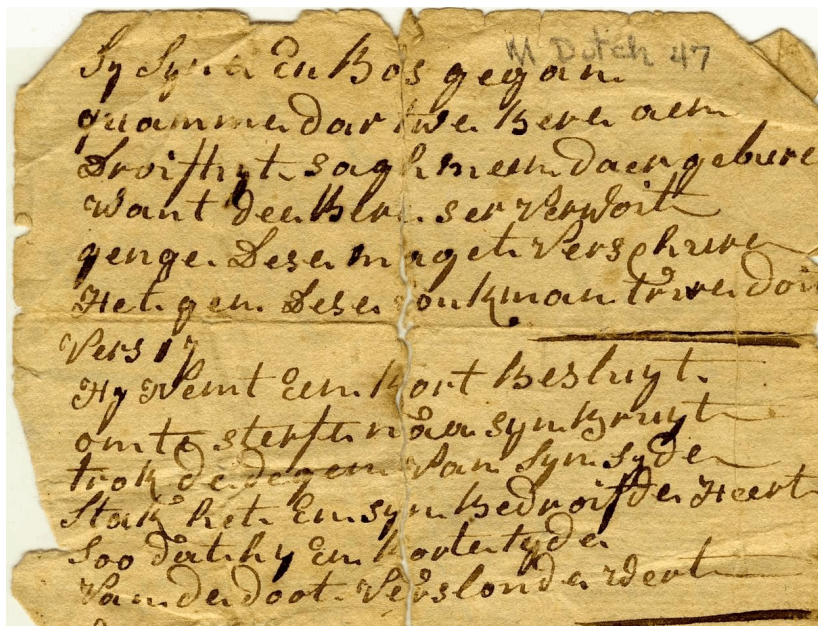 M Dutch 47
Sy Syn En Bos gegan
quamme dar twe Bere aen
Droifhyt sagh men daer gebure
Want dee Bere ser Verwoit
genge Dese maget Verschure
Het gen Dese Jonkman trure doit
Vers 17
Hy Nemt Een Kort Besluyt
om te sterfte na syn Bruyt
trok de degen Van Syn Syde
Stak het En syn Bedroifde Heert
Soo dat hy En korte tyde
Van de doot Verslonde Wert